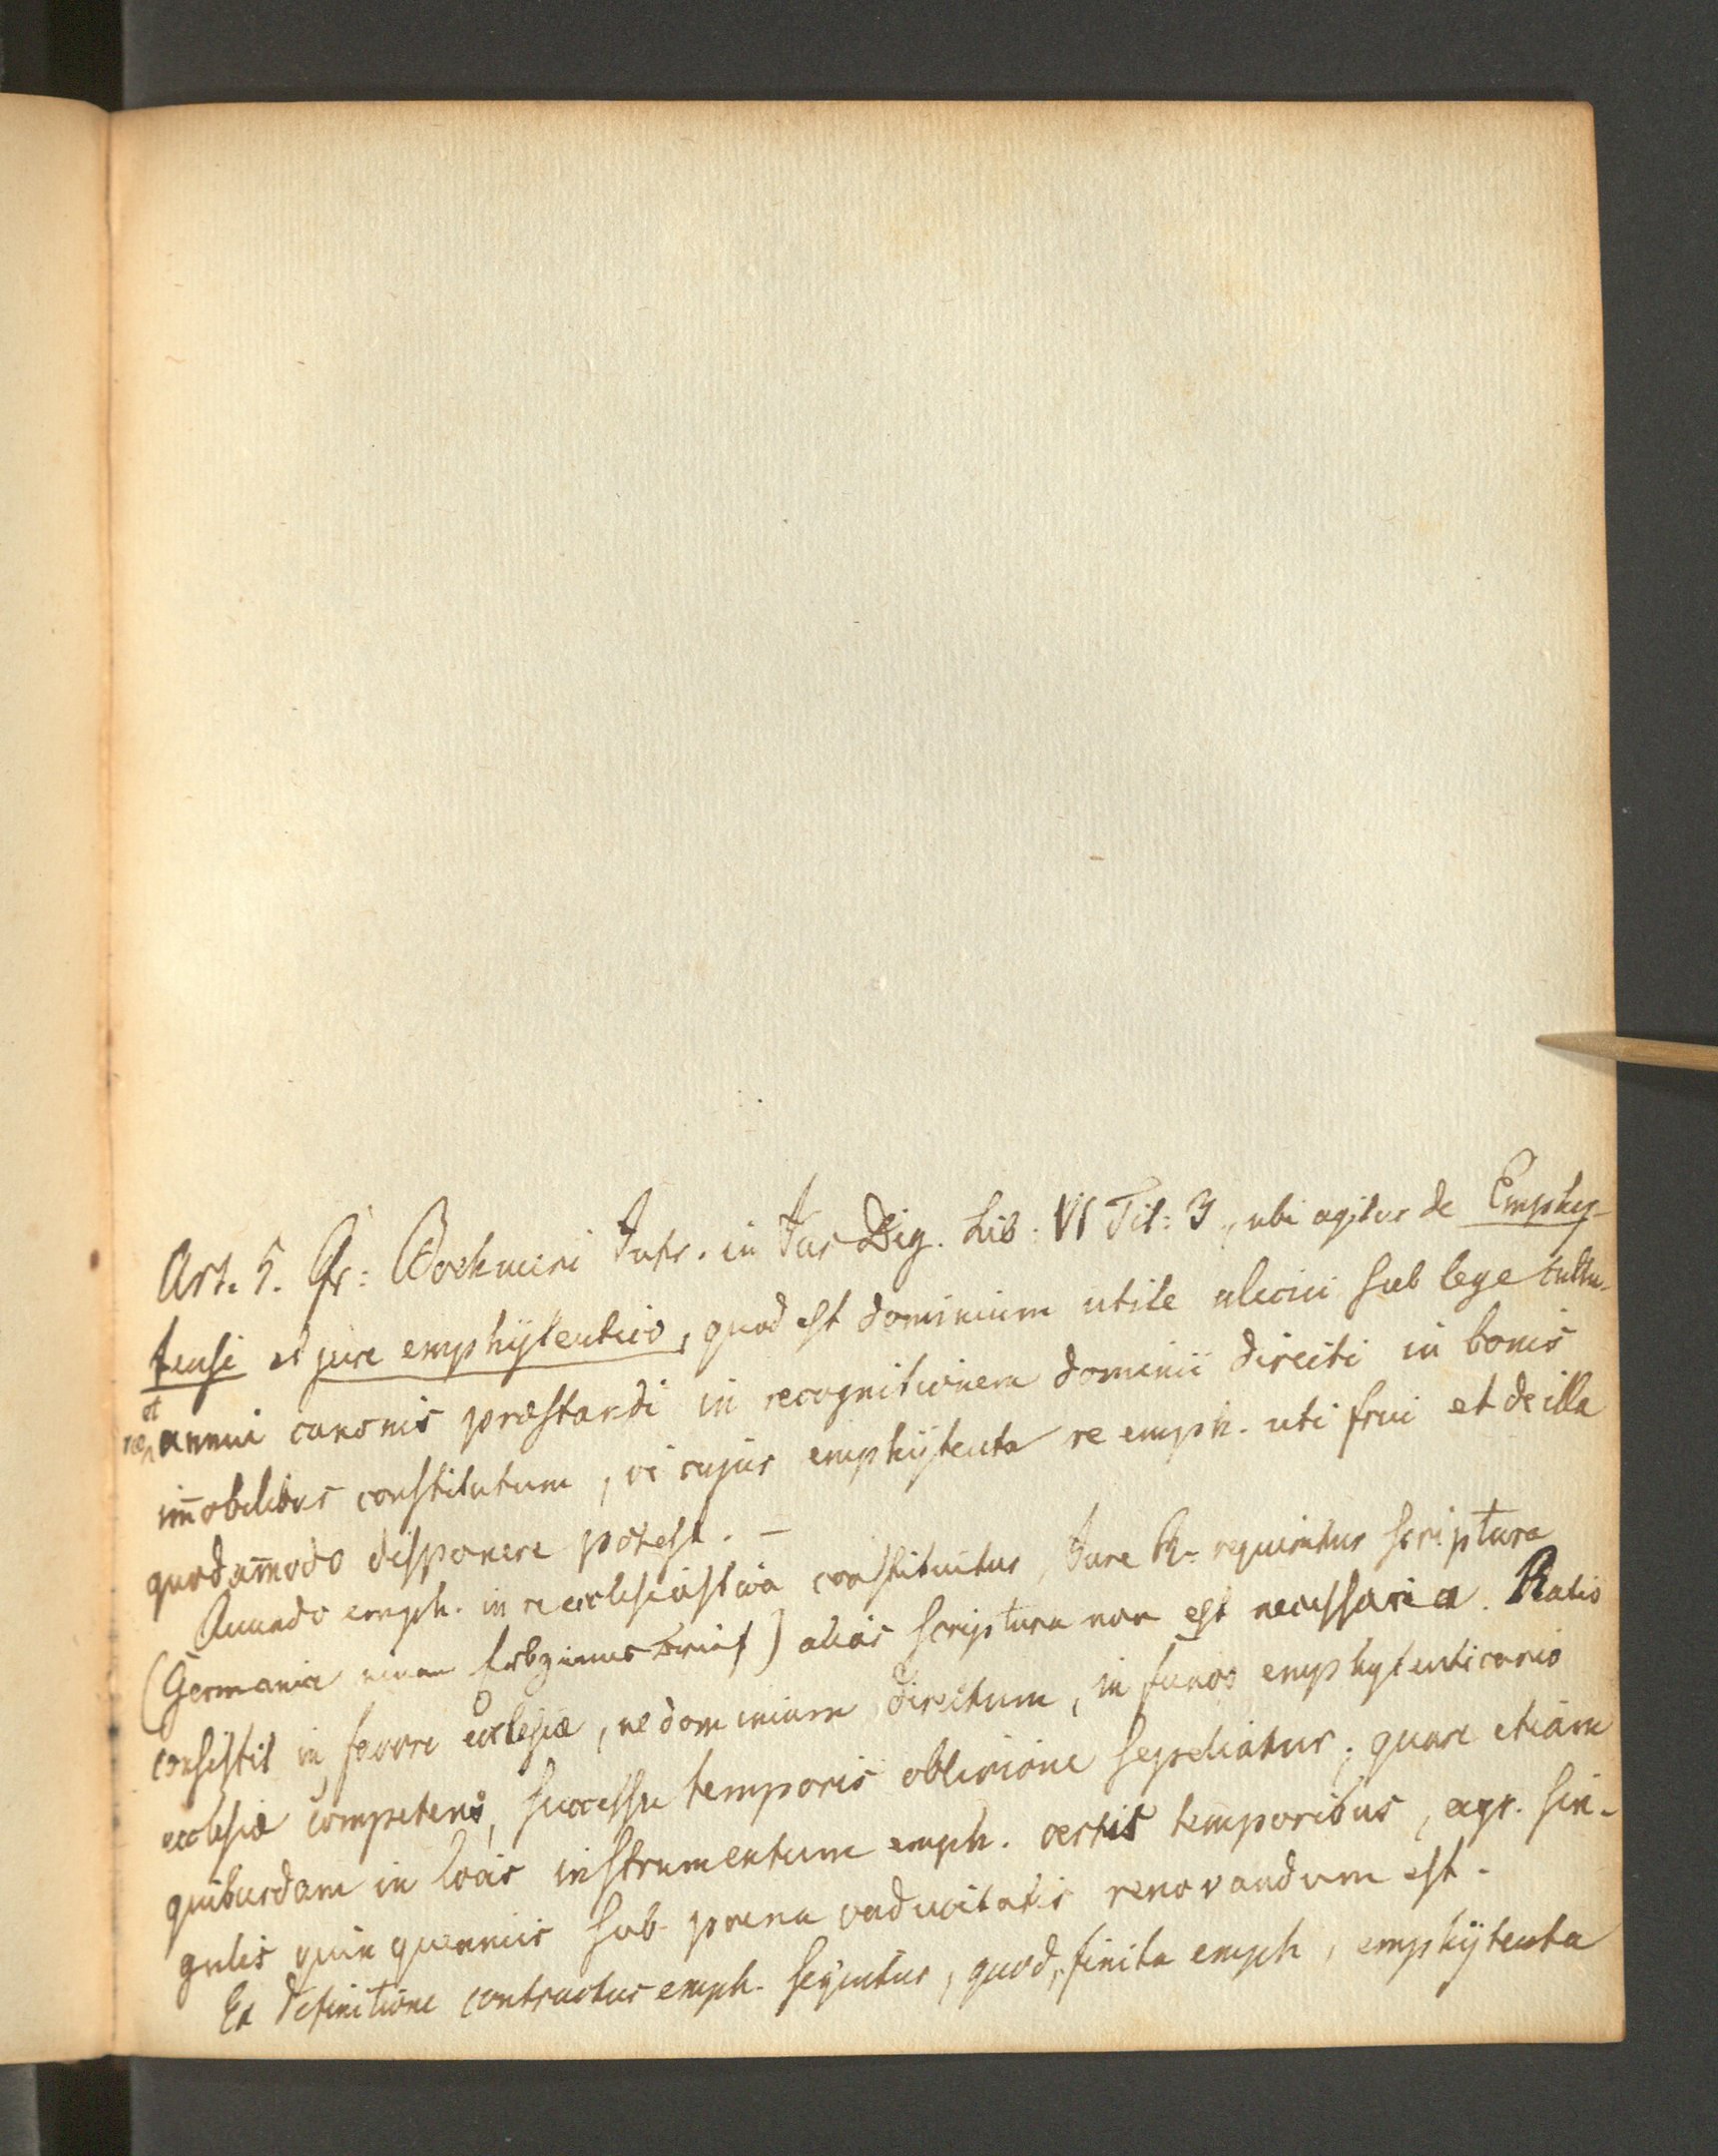 Art. 5. Gr: Boehmeri Intr. in Jus Dig. Lib: VI Tit: 3, ubi agitur de Emphy-
teusi et jure emphÿteutico, quod est dominium utile alicui sub lege cultu-
ræ et annui canonis præstandi in recognitionem dominii directi in bonis
im̄obilibus constitutum, vi cujus emphÿteuta re emph. uti frui et de illa
quodam̄odo disponere potest. –
Quando emph. in re ecclesiastica constituitur, Jure R. requiritur scriptura
(Germanice einen Erbzinns brief) alias scriptura non est necessaria. Ratio
consistit in favore ecclesiæ, ne dominium directum, in fundo emphyteuticario
ecclesiæ competens, successu temporis oblivione sepeliatur; quare etiam
quibusdam in locis instrumentum emph. certis temporibus, e. gr. sin-
gulis quinquenniis sub poena caducitatis renovandum est.
Ex definitione contractus emph. sequitur, quod, finita emph, emphÿteuta